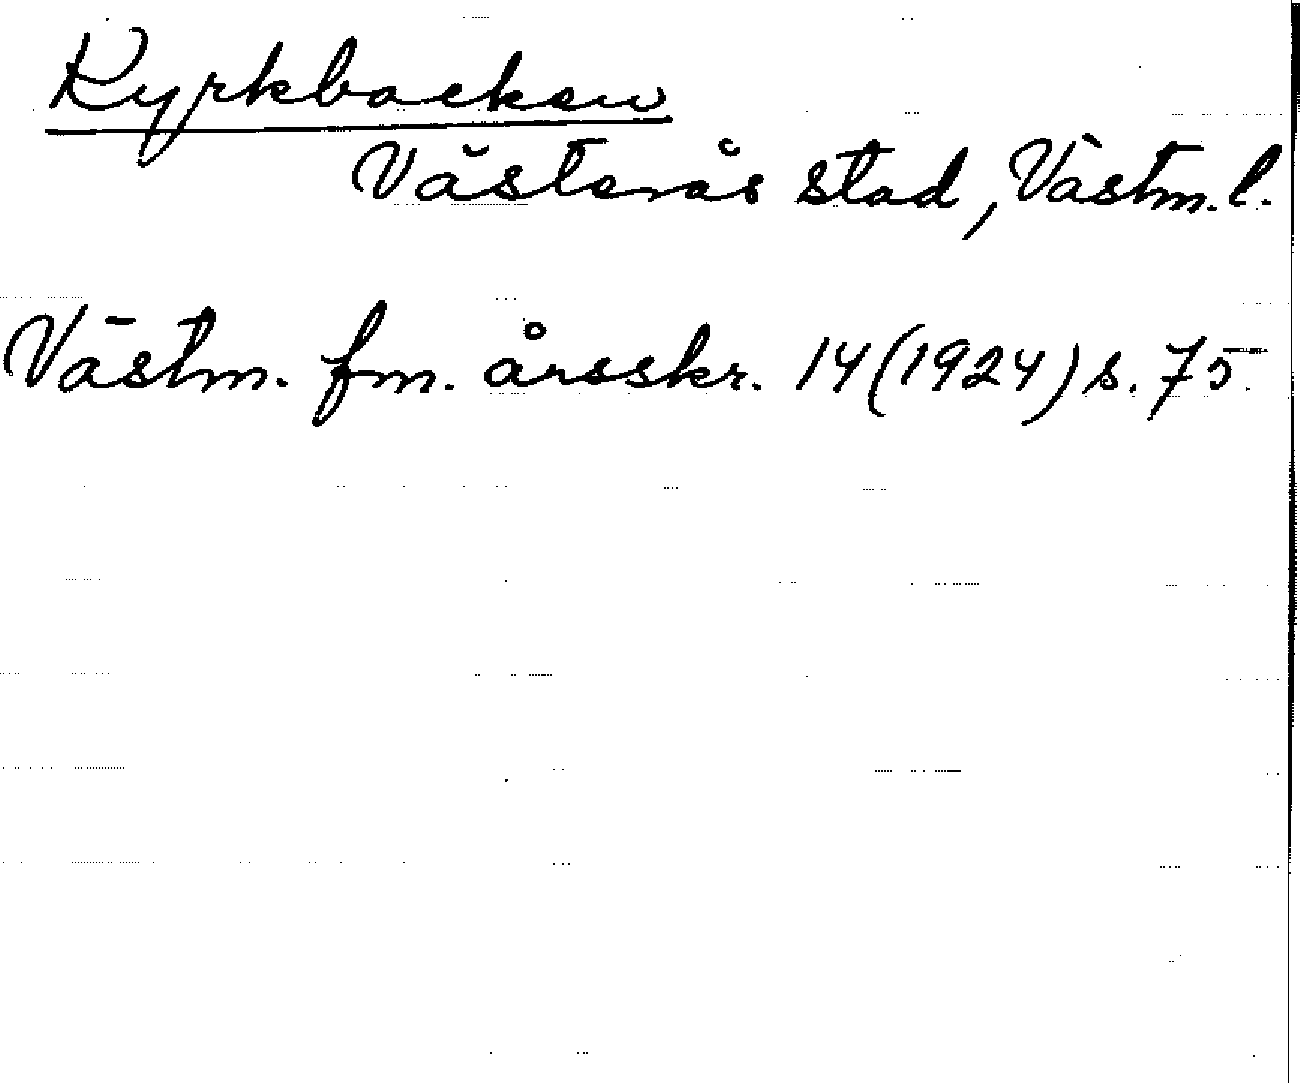 Kyrkbacken
Västerås stad, Västm. l.
Västm. fm. årsskr. 14 (1924) s. 75.